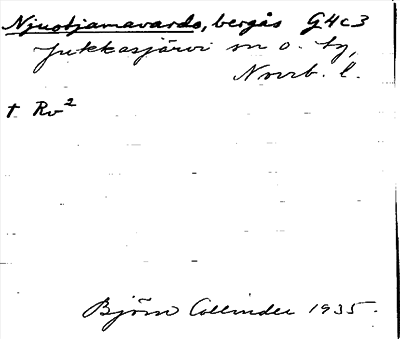 Njuotjamavardo, bergås G4c3
Jukkasjärvi sn o. ty,
Norrb. l.
t Rv²
Björn Collinder 1935.